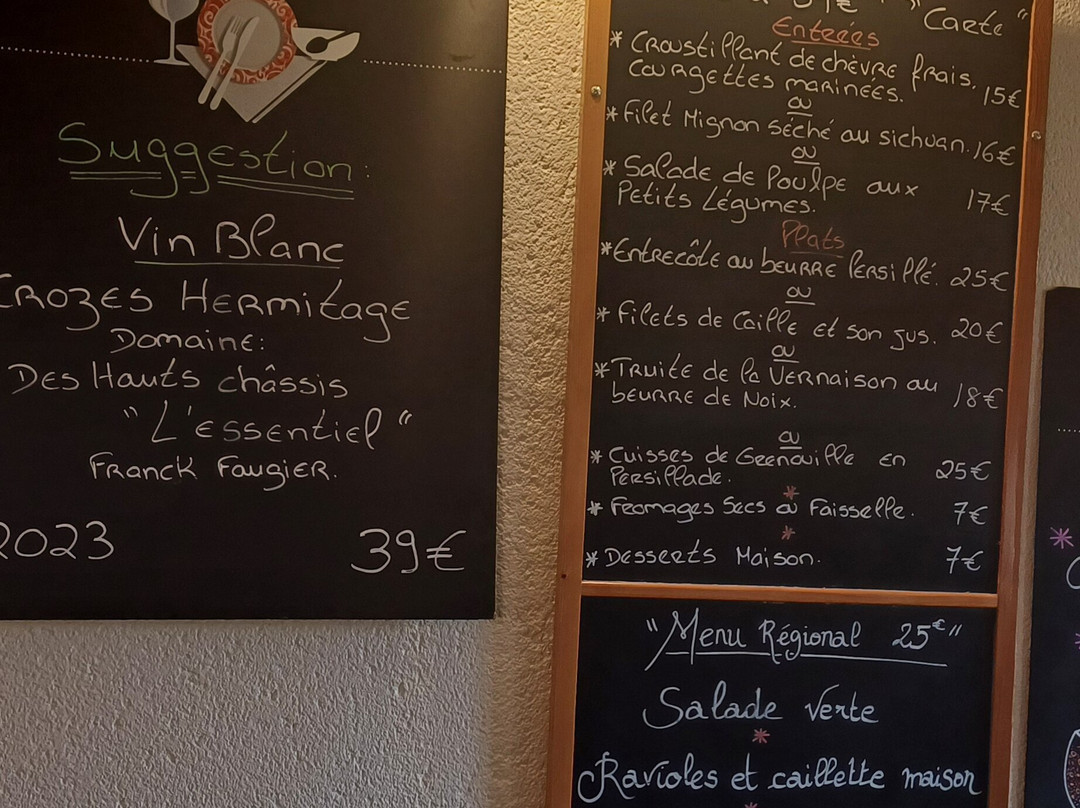 Suggestion:
Vin Blanc
CROZES HERMitage
Domaine:
Des Hauts châssis
"L'essentiel"
FRANCK FAUGIER.
2023 39€
"Carte"
Entrées
* CROUSTILLANT de chèvre frais.
COURGETTES marinées. 15€
ou
* Filet Mignon séché au sichuan. 16€
ou
* Salade de Poulpe aux 17€
Petits Légumes.
Plats
* Entrecôte au beurre Persillé. 25€
ou
* Filets de Caille et son jus. 20€
ou
* Truite de la Vernaison au 18€
beurre de Noix.
ou
* Cuisses de Grenouille en 25€
Persillade.
*
* Fromages Secs ou Faisselle. 7€
*
* Desserts Maison. 7€
"Menu Régional 25€"
Salade verte
*
Ravioles et caillette maison